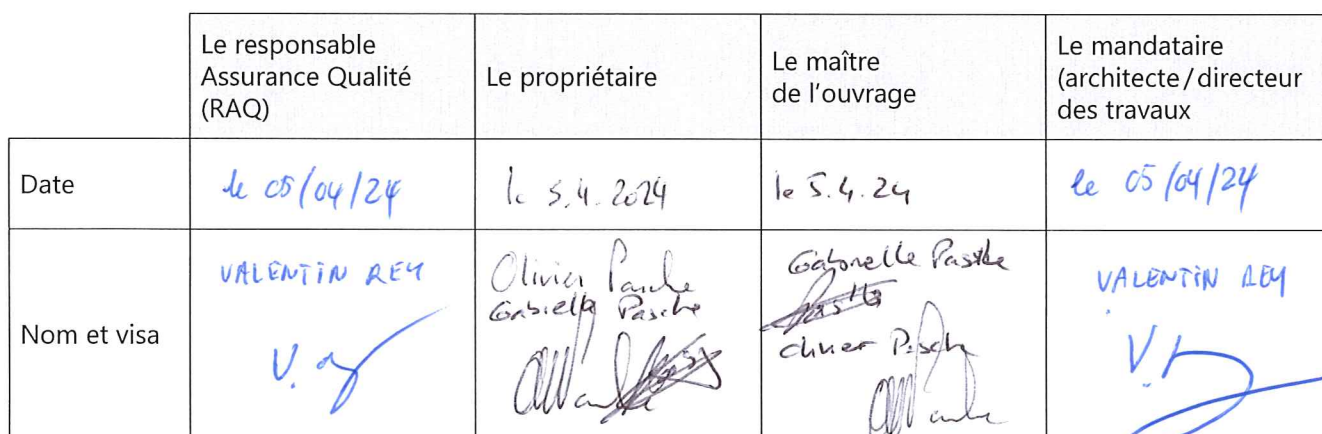 Le responsable
Assurance Qualité
(RAQ)
Le propriétaire
Le maître
de l'ouvrage
Le mandataire
(architecte / directeur
des travaux
Date
le 05/04/24
le 5.4.2024
le 5.4.24
le 05/04/24
Nom et visa
VALENTIN REY
V.
Olivier Pasche
Gabrielle Pasche
Gabrielle Pasche
Olivier Pasche
VALENTIN REY
V.